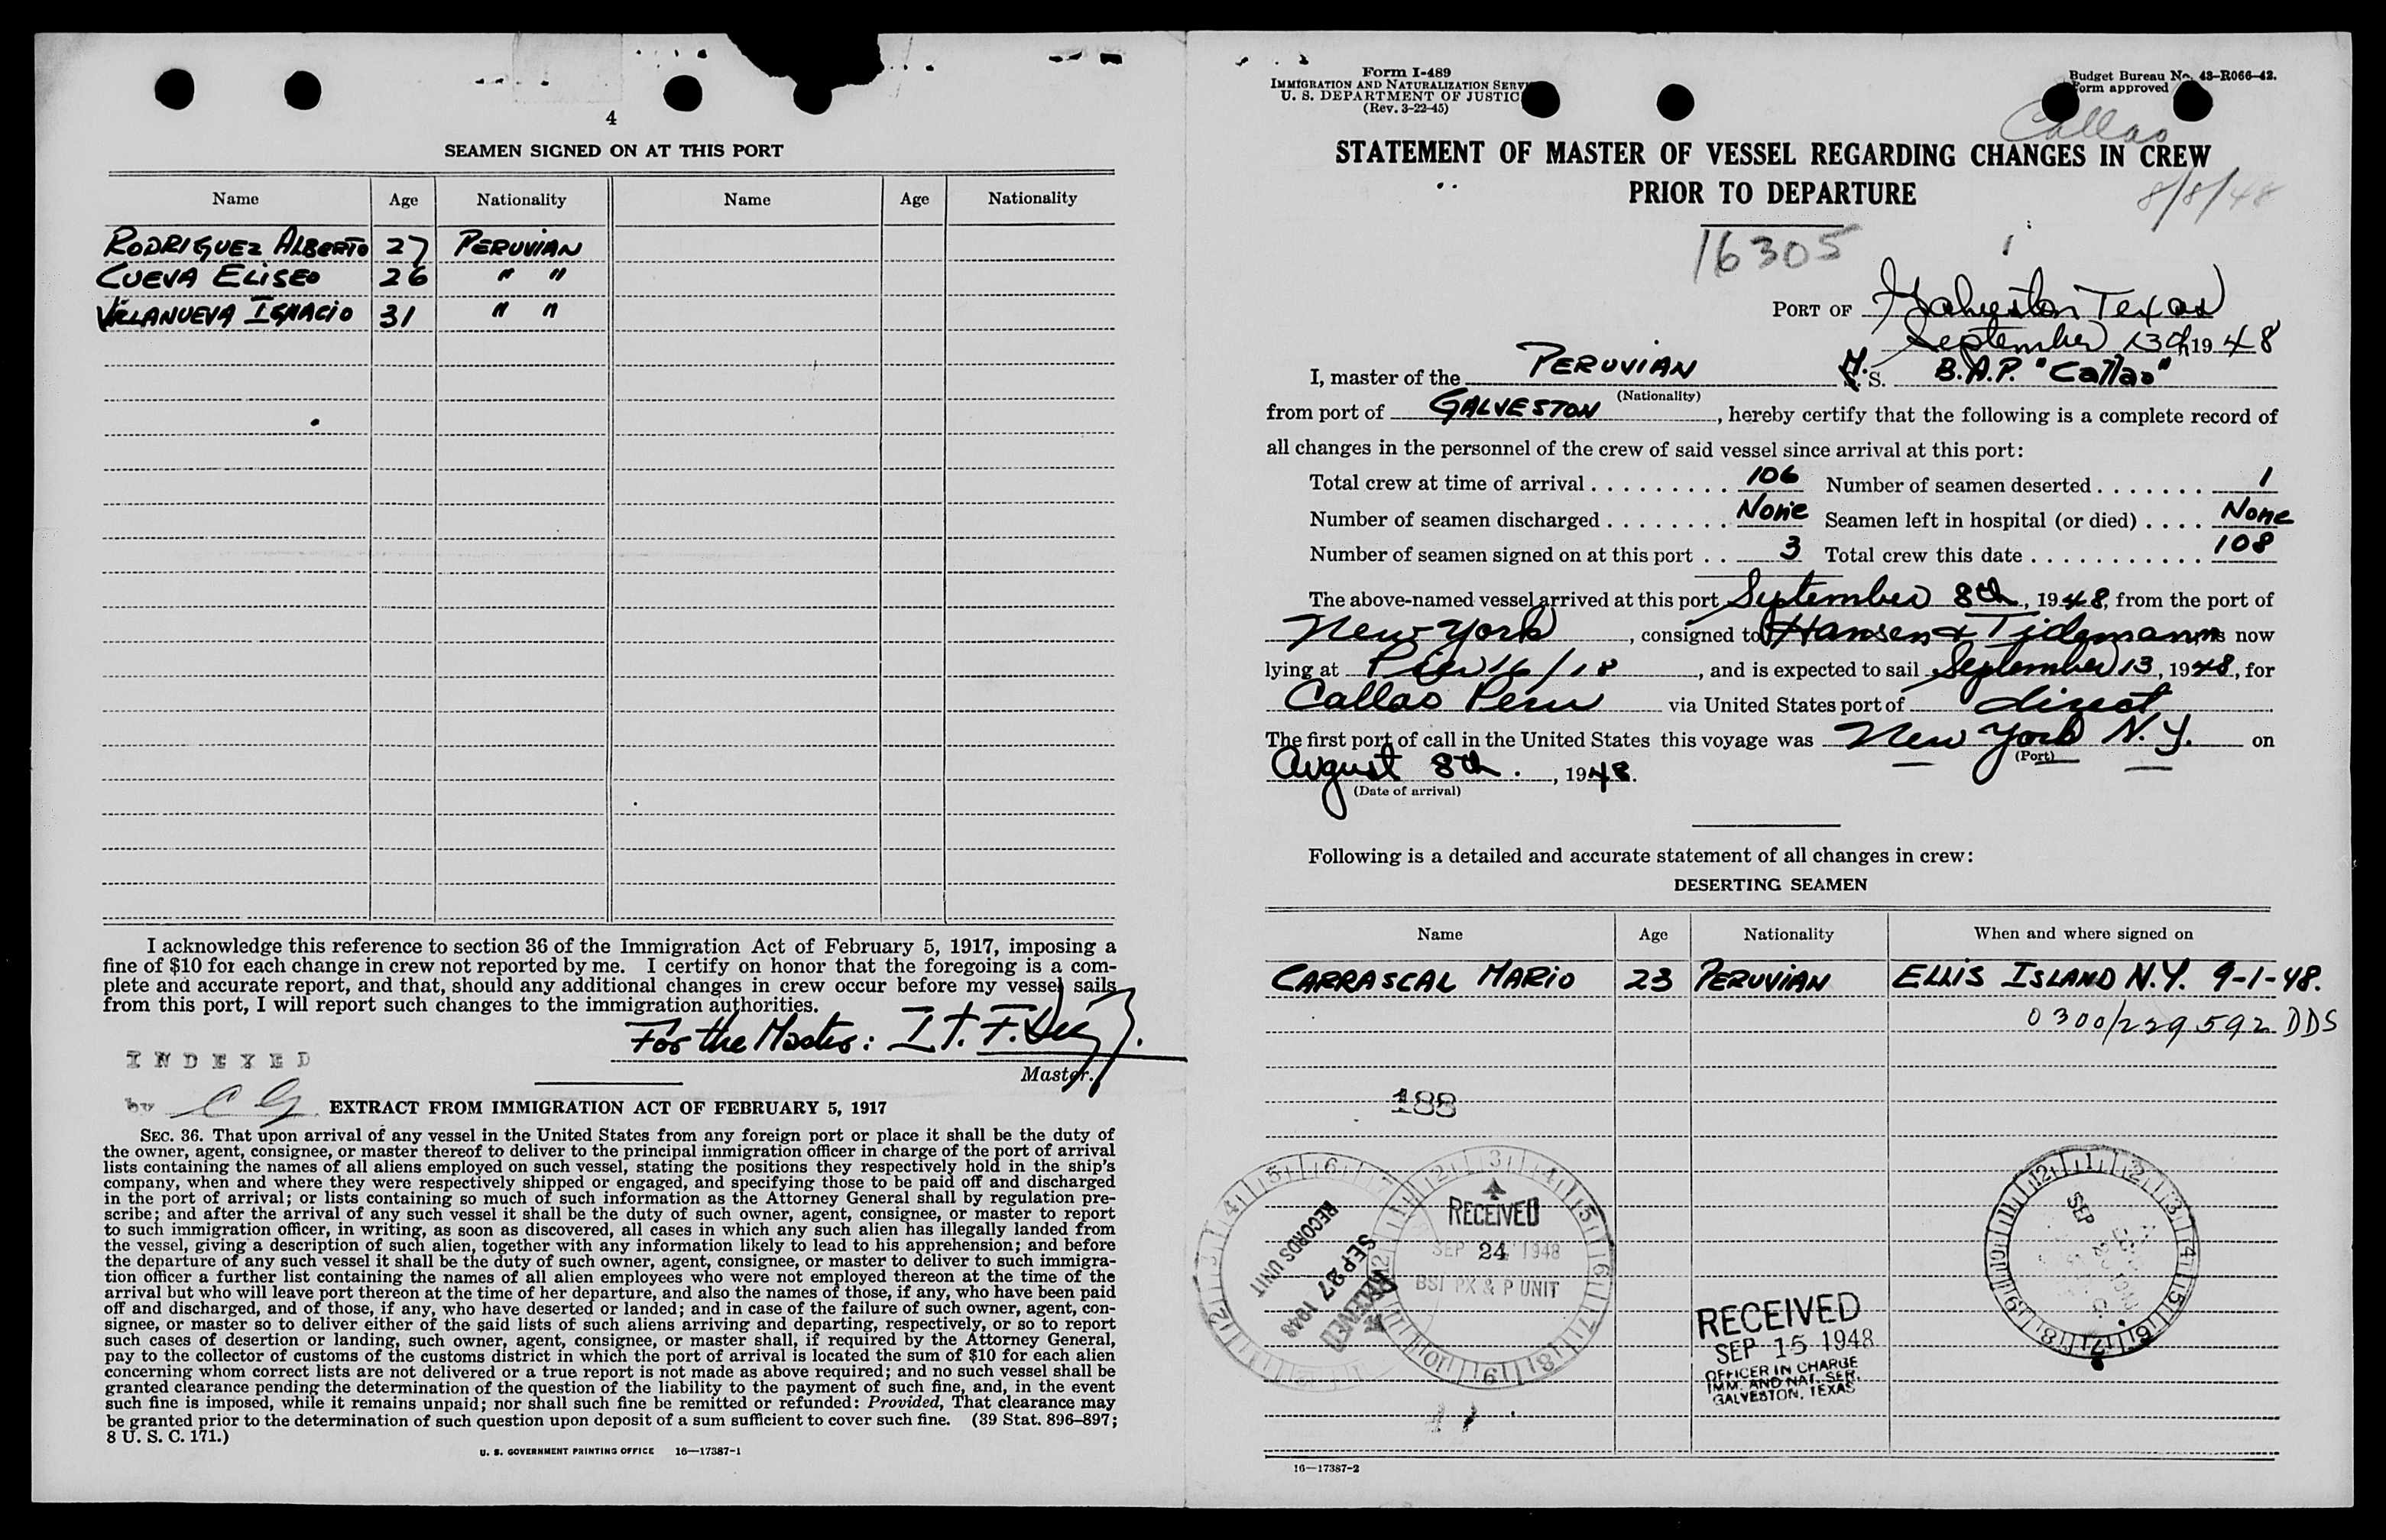 4
SEAMEN SIGNED ON AT THIS PORT
Name Age Nationality Name Age Nationality
RODRIGUEZ ALBERTO 27 PERUVIAN
CUEVA ELISEO 26 " "
VILLANUEVA IGNACIO 31 " "
I acknowledge this reference to section 36 of the Immigration Act of February 5, 1917, imposing a
fine of $10 for each change in crew not reported by me. I certify on honor that the foregoing is a com-
plete and accurate report, and that, should any additional changes in crew occur before my vessel sails
from this port, I will report such changes to the immigration authorities.
For the Master:
Master.
INDEXED
by CG
EXTRACT FROM IMMIGRATION ACT OF FEBRUARY 5, 1917
SEC. 36. That upon arrival of any vessel in the United States from any foreign port or place it shall be the duty of
the owner, agent, consignee, or master thereof to deliver to the principal immigration officer in charge of the port of arrival
lists containing the names of all aliens employed on such vessel, stating the positions they respectively hold in the ship's
company, when and where they were respectively shipped or engaged, and specifying those to be paid off and discharged
in the port of arrival; or lists containing so much of such information as the Attorney General shall by regulation pre-
scribe; and after the arrival of any such vessel it shall be the duty of such owner, agent, consignee, or master to report
to such immigration officer, in writing, as soon as discovered, all cases in which any such alien has illegally landed from
the vessel, giving a description of such alien, together with any information likely to lead to his apprehension; and before
the departure of any such vessel it shall be the duty of such owner, agent, consignee, or master to deliver to such immigra-
tion officer a further list containing the names of all alien employees who were not employed thereon at the time of the
arrival but who will leave port thereon at the time of her departure, and also the names of those, if any, who have been paid
off and discharged, and of those, if any, who have deserted or landed; and in case of the failure of such owner, agent, con-
signee, or master so to deliver either of the said lists of such aliens arriving and departing, respectively, or so to report
such cases of desertion or landing, such owner, agent, consignee, or master shall, if required by the Attorney General,
pay to the collector of customs of the customs district in which the port of arrival is located the sum of $10 for each alien
concerning whom correct lists are not delivered or a true report is not made as above required; and no such vessel shall be
granted clearance pending the determination of the question of the liability to the payment of such fine, and, in the event
such fine is imposed, while it remains unpaid; nor shall such fine be remitted or refunded: Provided, That clearance may
be granted prior to the determination of such question upon deposit of a sum sufficient to cover such fine. (39 Stat. 896–897;
8 U. S. C. 171.)
U. S. GOVERNMENT PRINTING OFFICE 16—17387-1
Form I-489
IMMIGRATION AND NATURALIZATION SERV
U. S. DEPARTMENT OF JUSTIC
(Rev. 3-22-45)
Budget Bureau No. 43-R066-42.
Form approved
Callao
STATEMENT OF MASTER OF VESSEL REGARDING CHANGES IN CREW
PRIOR TO DEPARTURE
8/8/48
16305
PORT OF Galveston Texas
September 13th 1948
I, master of the PERUVIAN M. S. B.A.P. "Callao"
(Nationality)
from port of GALVESTON, hereby certify that the following is a complete record of
all changes in the personnel of the crew of said vessel since arrival at this port:
Total crew at time of arrival . . . . . . . . . . 106 Number of seamen deserted . . . . . . . 1
Number of seamen discharged . . . . . . . . None Seamen left in hospital (or died) . . . . None
Number of seamen signed on at this port . . 3 Total crew this date . . . . . . . . . . . 108
The above-named vessel arrived at this port September 8th, 1948, from the port of
New York, consigned to Hansen & Tidemann, is now
lying at Pier 16/18, and is expected to sail September 13, 1948, for
Callao Peru via United States port of direct
The first port of call in the United States this voyage was New York N.Y. on
(Port)
August 8th, 1948.
(Date of arrival)
Following is a detailed and accurate statement of all changes in crew:
DESERTING SEAMEN
Name Age Nationality When and where signed on
CARRASCAL MARIO 23 PERUVIAN ELLIS ISLAND N.Y. 9-1-48.
0300/229592 DDS
188
RECORDS UNIT
SEP 27 1948
RECEIVED
RECEIVED
SEP 24 1948
BSI PX & P UNIT
RECEIVED
SEP 15 1948
OFFICER IN CHARGE
IMM. AND NAT. SER.
GALVESTON, TEXAS
SEP
16—17387-2